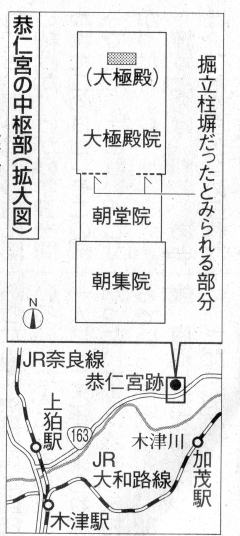 恭仁宮の中枢部(拡大図)
(大極殿)
大極殿院
朝堂院
朝集院
掘立柱塀だったとみられる部分
N
JR奈良線
恭仁宮跡
上狛駅
163
木津川
加茂駅
JR
大和路線
木津駅